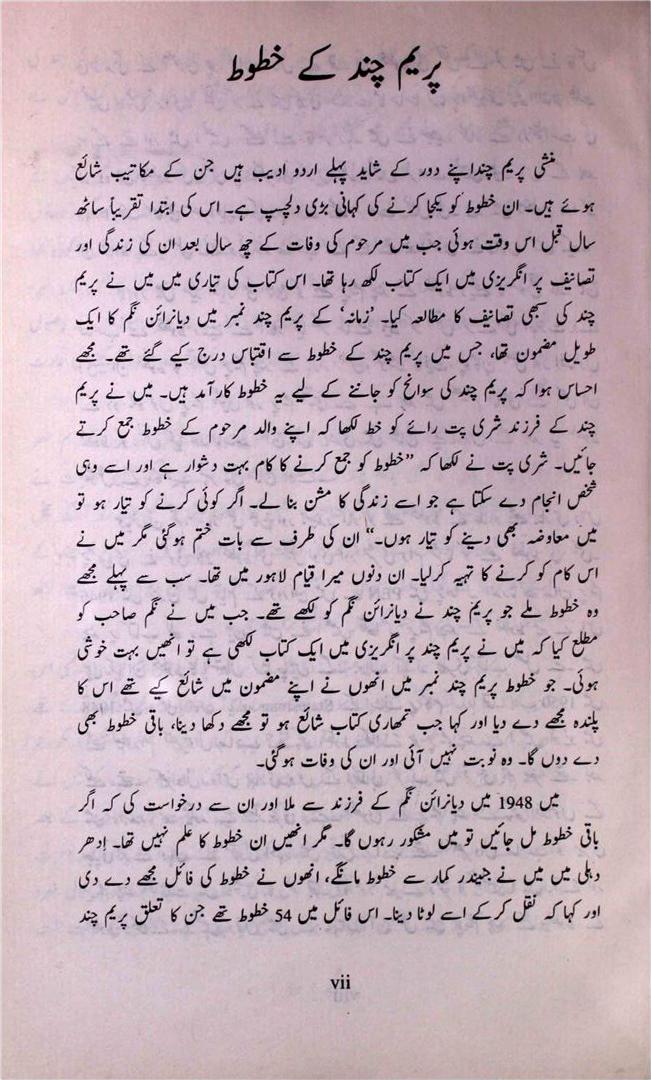 پریم چند کے خطوط
منشی پریم چند اپنے دور کے شاید پہلے اردو ادیب ہیں جن کے مکاتیب شائع
ہوئے ہیں۔ ان خطوط کو یکجا کرنے کی کہانی بڑی دلچسپ ہے۔ اس کی ابتدا تقریباً ساٹھ
سال قبل اس وقت ہوئی جب میں مرحوم کی وفات کے چھ سال بعد ان کی زندگی اور
تصانیف پر انگریزی میں ایک کتاب لکھ رہا تھا۔ اس کتاب کی تیاری میں میں نے پریم
چند کی سبھی تصانیف کا مطالعہ کیا۔ ’زمانہ‘ کے پریم چند نمبر میں دیانرائن نگم کا ایک
طویل مضمون تھا، جس میں پریم چند کے خطوط سے اقتباس درج کیے گئے تھے۔ مجھے
احساس ہوا کہ پریم چند کی سوانح کو جاننے کے لیے یہ خطوط کارآمد ہیں۔ میں نے پریم
چند کے فرزند شری پت رائے کو خط لکھا کہ اپنے والد مرحوم کے خطوط جمع کرتے
جائیں۔ شری پت نے لکھا کہ ”خطوط کو جمع کرنے کا کام بہت دشوار ہے اور اسے وہی
شخص انجام دے سکتا ہے جو اسے زندگی کا مشن بنا لے۔ اگر کوئی کرنے کو تیار ہو تو
میں معاوضہ بھی دینے کو تیار ہوں۔“ ان کی طرف سے بات ختم ہوگئی مگر میں نے
اس کام کو کرنے کا تہیہ کرلیا۔ ان دنوں میرا قیام لاہور میں تھا۔ سب سے پہلے مجھے
وہ خطوط ملے جو پریم چند نے دیانرائن نگم کو لکھے تھے۔ جب میں نے نگم صاحب کو
مطلع کیا کہ میں نے پریم چند پر انگریزی میں ایک کتاب لکھی ہے تو انھیں بہت خوشی
ہوئی۔ جو خطوط پریم چند نمبر میں انھوں نے اپنے مضمون میں شائع کیے تھے اس کا
پلندہ مجھے دے دیا اور کہا جب تمھاری کتاب شائع ہو تو مجھے دکھا دینا، باقی خطوط بھی
دے دوں گا۔ وہ نوبت نہیں آئی اور ان کی وفات ہوگئی۔
میں 1948 میں دیانرائن نگم کے فرزند سے ملا اور ان سے درخواست کی کہ اگر
باقی خطوط مل جائیں تو میں مشکور رہوں گا۔ مگر انھیں ان خطوط کا علم نہیں تھا۔ اِدھر
دہلی میں میں نے جینیندر کمار سے خطوط مانگے، انھوں نے خطوط کی فائل مجھے دے دی
اور کہا کہ نقل کرکے اسے لوٹا دینا۔ اس فائل میں 54 خطوط تھے جن کا تعلق پریم چند
vii